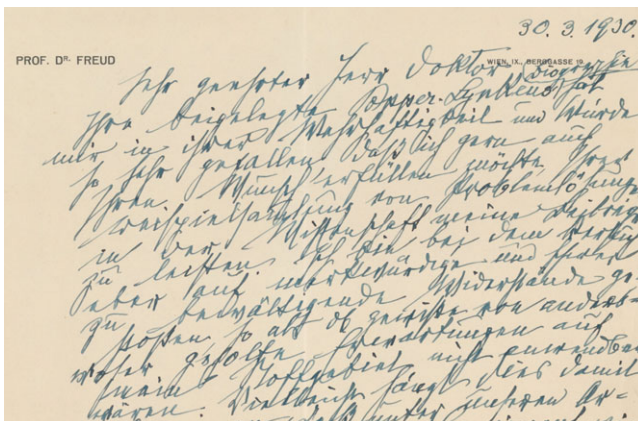 30. 3. 1930.
PROF. DR. FREUD
WIEN, IX., BERGGASSE 19.
Sehr geehrter Herr Doktor
Ihre beigelegte Popper-Lynkeus Biographie hat
mir in ihrer Wahrhaftigkeit und Würde
so sehr gefallen, daß ich gern auch
Ihren Wunsch erfüllen möchte, Ihrer
Beispielsammlung von Problemlösungen
in der Wissenschaft meine Beiträge
zu leisten. Ich bin bei dem Versuch
aber auf merkwürdige und schwer
zu bewältigende Widerstände ge-
stoßen, so als ob gewisse von anders-
woher geholte Erwartungen auf
mein Stoffgebiet nicht anwendbar
wären. Vielleicht hängt dies damit
unter unseren Ar-